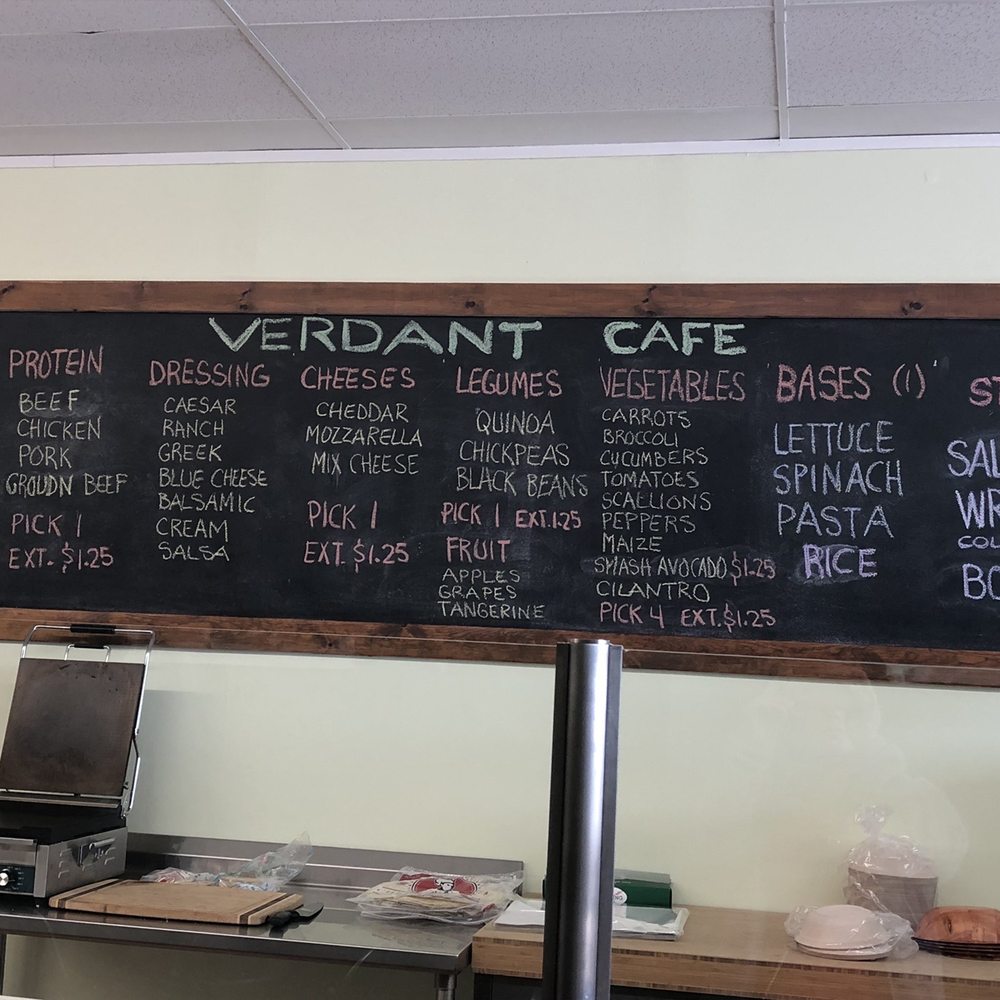 VERDANT CAFE
PROTEIN
BEEF
CHICKEN
PORK
GROUDN BEEF
PICK 1
EXT. $1.25
DRESSING
CAESAR
RANCH
GREEK
BLUE CHEESE
BALSAMIC
CREAM
SALSA
CHEESES
CHEDDAR
MOZZARELLA
MIX CHEESE
PICK 1
EXT. $1.25
LEGUMES
QUINOA
CHICKPEAS
BLACK BEANS
PICK 1 EXT. 1.25
FRUIT
APPLES
GRAPES
TANGERINE
VEGETABLES
CARROTS
BROCCOLI
CUCUMBERS
TOMATOES
SCALLIONS
PEPPERS
MAIZE
SMASH AVOCADO $1.25
CILANTRO
PICK 4 EXT. $1.25
BASES (1)
LETTUCE
SPINACH
PASTA
RICE
ST
SAL
WR
COL
BO